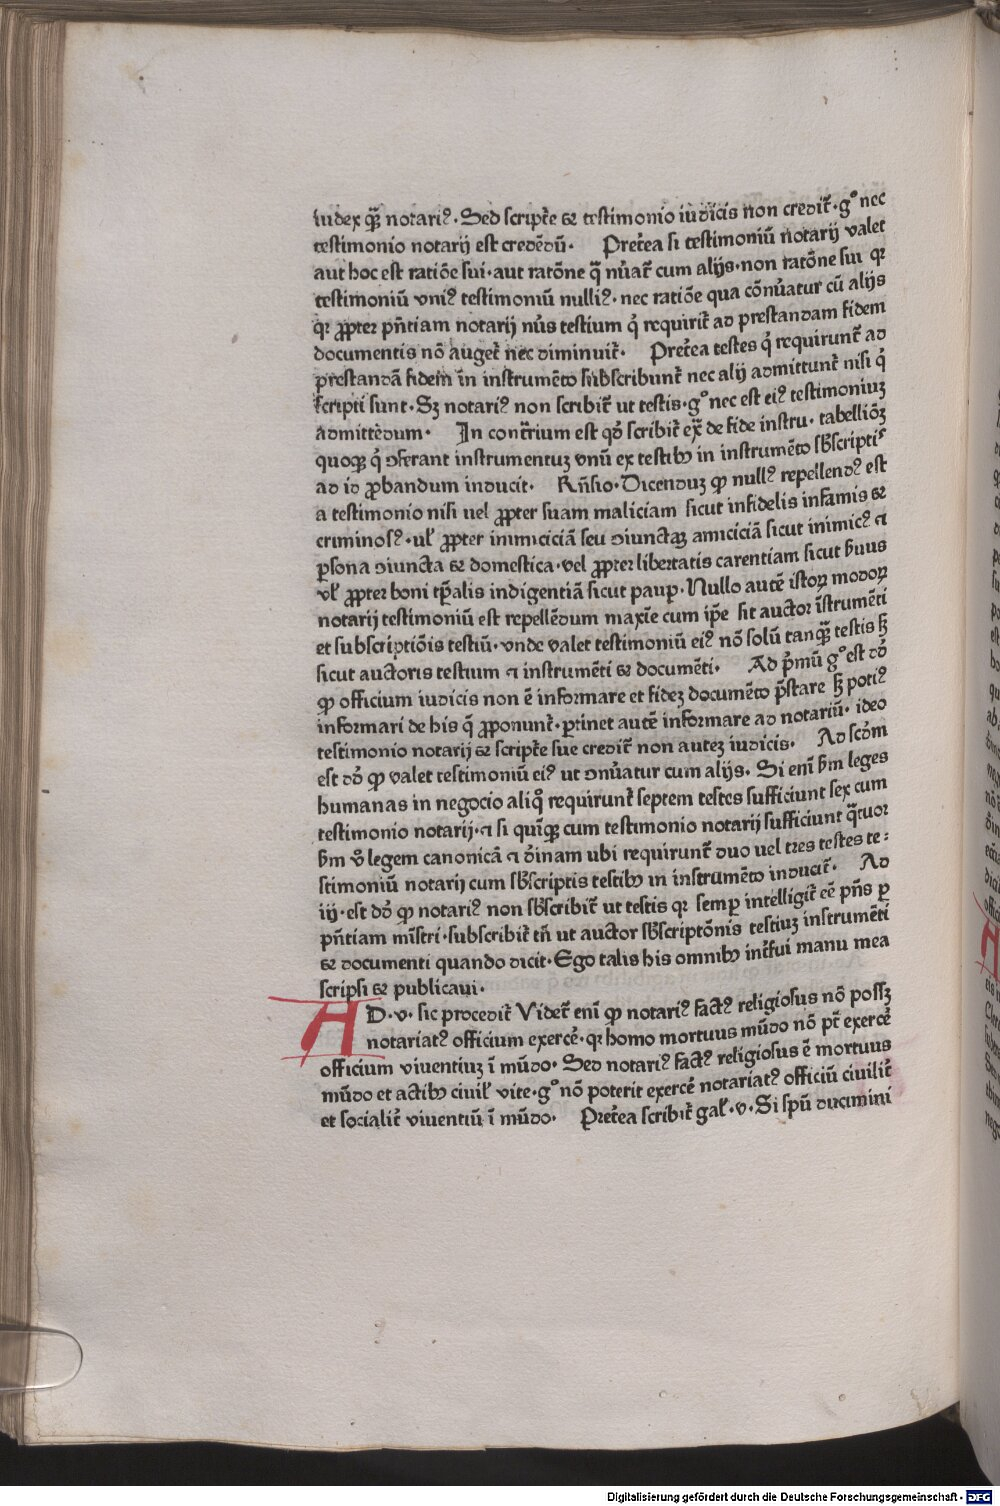 iudex qȝ notariꝰ. Sed scripte̾ ⁊ testimonio iudicis non credit̾. gͦ nec
testimonio notarij est credēdū. Prete̾a si testimoniū notarij valet
aut hoc est ratiōe sui. aut ratōne q̄ nūat̾ cum alijs. non ratōne sui qꝛ
testimoniū vniꝰ testimoniū nulliꝰ. nec ratiōe qua cōnūatur cū alijs
qꝛ ꝓpter pn̄tiam notarij nūs testium q̇ requirit̾ ad prestandam fidem
documentis nō auget̾ nec diminuit̾. Prete̾a testes q̇ requirunt̾ ad
prestandā fidem in̄ instrumēto subscribunt̾ nec alij admittunt̾ nisi q̇
scripti sunt. Sꝫ notariꝰ non scribit̾ ut testis. gͦ nec est eiꝰ testimoniuꝫ
admittēdum. In cont̾rium est qď scribit̾ ex̄ de fide instru. tabelliōꝫ
quoqꝫ q̇ ↄferant instrumentuꝫ vnū ex testibꝫ in instrumēto sb̄scripti
ad id ꝓbandum inducit. Rn̄sio. Dicenduꝫ ꝙ nullꝰ repellendꝰ est
a testimonio nisi uel ꝓpter suam maliciam sicut infidelis infamis ⁊
criminosꝰ. ul̾ ꝓpter inimiciciā seu ↄiunctaꝫ amiciciā sicut inimicꝰ ⁊
ꝑsona ↄiuncta ⁊ domestica. vel ꝓpter libertatis carentiam sicut s̄uus
vl̾ ꝓpter boni tꝑalis indigentiā sicut pauꝑ. Nullo autē istoꝝ modoꝝ
notarij testimoniū est repellēdum maxīe cum ip̄e sit auctor īstrumēti
et subscriptiōis testiū. vnde valet testimoniū eiꝰ nō solū tanqȝ testis sꝫ
sicut auctoris testium ⁊ instrumēti ⁊ documēti. Ad p̄mū gͦ est dō
ꝙ officium iudicis non ē informare et fideꝫ documēto p̄stare sꝫ potiꝰ
informari de his q̄ ꝓponunt̾. ꝑtinet autē informare ad notariū. ideo
testimonio notarij ⁊ scripte̾ sue credit̾ non auteꝫ iudicis. Ad scdm
est dō ꝙ valet testimoniū eiꝰ ut ↄnūatur cum alijs. Si eni̅ s̄m leges
humanas in negocio aliqͦ requirunt̾ septem testes sufficiunt sex cum
testimonio notarij. ⁊ si quīqꝫ cum testimonio notarij sufficiunt q̄tuor
s̄m vͦ legem canonicā ⁊ dīnam ubi requirunt̾ duo uel tres testes te⸗
stimoniū notarij cum sb̄scriptis testibꝫ in instrumēto inducit̾. Ad
iij. est dō ꝙ notariꝰ non sb̄scribit̾ ut testis qꝛ semꝑ intelligit̾ eē pn̄s ꝑ
pn̄tiam mīstri. subscribit̾ tn̄ ut auctor sb̄scriptōnis testiuꝫ instrumēti
⁊ documenti quando dicit. Ego talis his omnibꝫ int̾fui manu mea
scripsi ⁊ publicaui.
AD. v. sic procedit̾ Videt̾ eni̅ ꝙ notariꝰ factꝰ religiosus nō possꝫ
notariatꝰ officium exerce̾. qꝛ homo mortuus mūdo nō pt̄ exerce̾
officium viuentiuꝫ ī mūdo. Sed notariꝰ factꝰ religiosus ē mortuus
mūdo et actibꝫ ciuil̾ vite. gͦ nō poterit exerce̾ notariatꝰ officiū ciuilit̾
et socialit̾ viuentiū ī mūdo. Prete̾a scribit̾ gal̾. v. Si spū ducimini